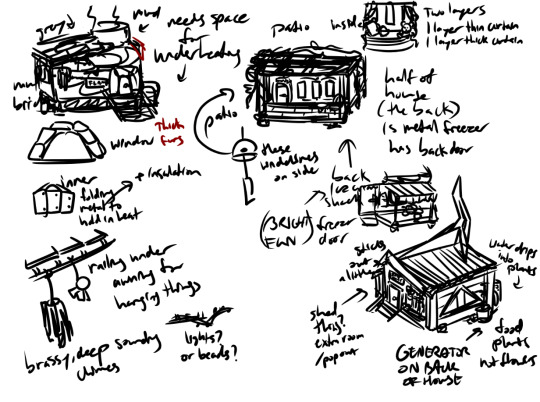 mud
needs space
for
underheating
mud
brick
window
Thick
furs
inner
folding
metal to
hold in heat
+ insulation
patio
patio
these
windchimes
on side
inside
Two layers
1 layer thin curtain
1 layer thick curtain
half of
house
(the back)
is metal freezer
has backdoor
back
(BRIGHT
freezer
door
sticks
out
a little
water drips
into
plants
shed
thing?
extra room
/popout
GENERATOR
ON BACK
OF HOUSE
food
plants
not flowers
railing under
awning for
hanging things
brassy, deep sounding
chimes
lights?
or beads?